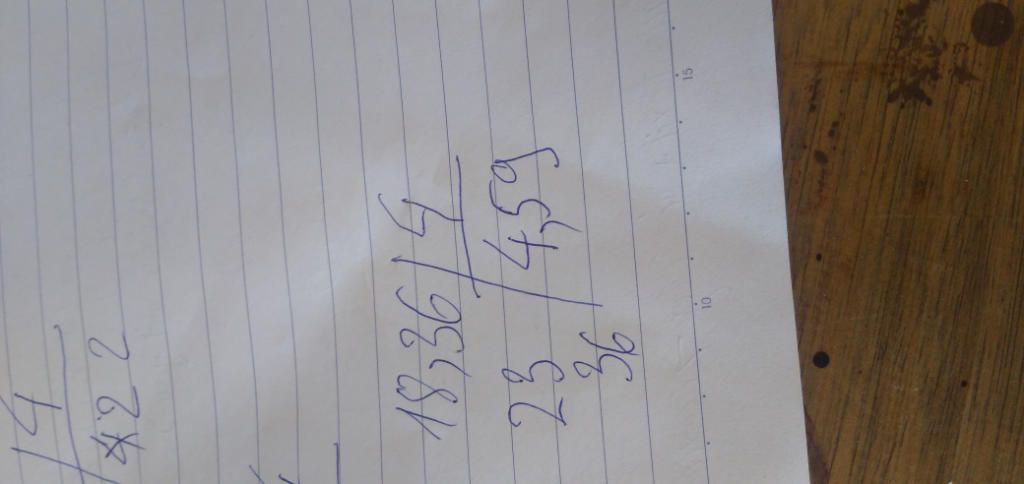 4
422
18,36 4
23 4,59
36
15
10